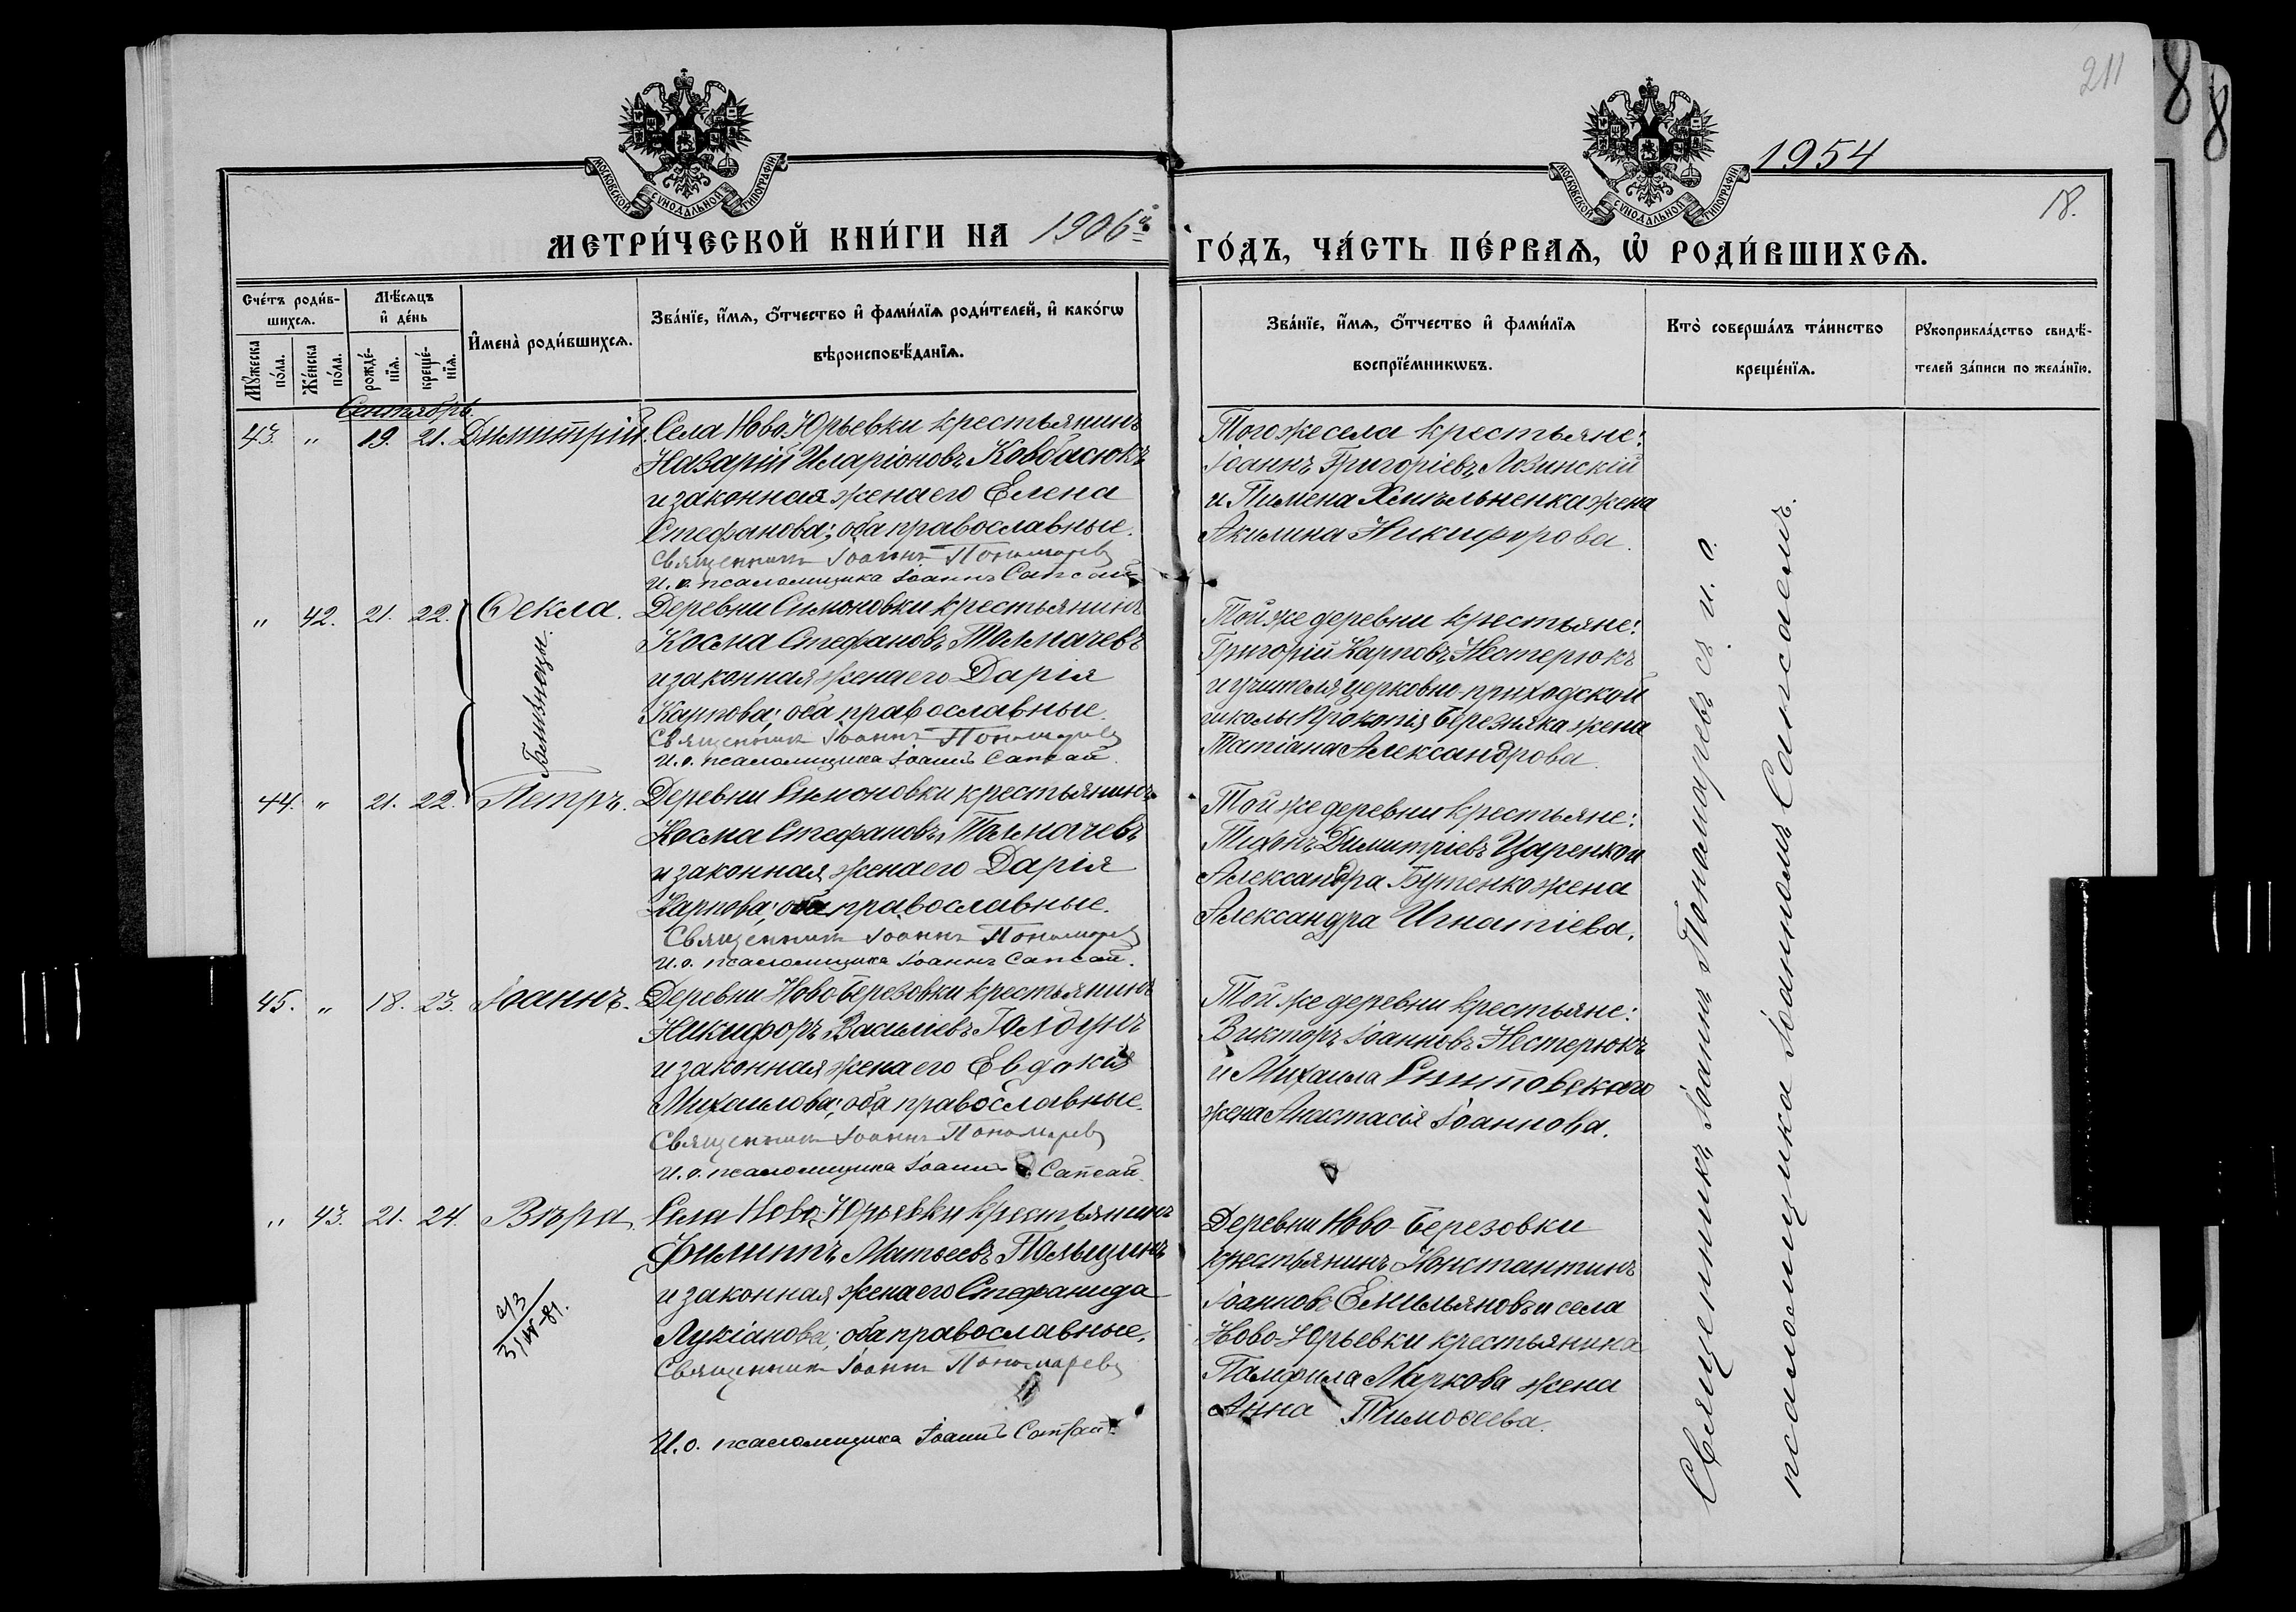 211
8
8
1954
18.
МОСКОВСКОЙ СѴНОДАЛЬНОЙ ТИПОГРАФІИ
МОСКОВСКОЙ СѴНОДАЛЬНОЙ ТИПОГРАФІИ
МЕТРИ́ЧЕСКОЙ КНИ́ГИ НА 1906й
ГО́ДЪ, ЧА́СТЬ ПЕ́РВАѦ, Ѡ҆ РОДИ́ВШИХСѦ.
Сче́тъ роди́в-
шихсѧ.
Мꙋжеска
по́ла.
Же́нска
по́ла.
Мѣ́сѧцъ
и҆ де́нь
рожде́-
нїѧ.
креще́-
нїѧ.
И҆мена̀ роди́вшихсѧ.
Зва́нїе, и҆́мѧ, ѻ҆́тчество и҆ фами́лїѧ роди́телей, и҆ како́гѡ
вѣроисповѣ́данїѧ.
Зва́нїе, и҆́мѧ, ѻ҆́тчество и҆ фами́лїѧ
воспрїе́мникѡвъ.
Кто̀ соверша́лъ та́инство
креще́нїѧ.
Рꙋкоприкла́дство свидѣ́-
телей за́писи по жела́нїю.
Сентябрь.
43. " 19. 21. Димитрій.
Села Ново-Юрьевки крестьянинъ
Назарій Иларіоновъ Ковбасюкъ
и законная жена его Елена
Стефанова; оба православные.
Священникъ Іоаннъ Пономаревъ
И. о. псаломщика Іоаннъ Сапсай
Того же села крестьяне:
Іоаннъ Григоріевъ Лозинскій
и Пимена Хмѣльненка жена
Акилина Никифорова.
" 42. 21. 22. Ѳекла.
Близнецы.
Деревни Симоновки крестьянинъ
Косма Стефановъ Толмачевъ
и законная жена его Дарія
Карпова; оба православные.
Священникъ Іоаннъ Пономаревъ
И. о. псаломщика Іоаннъ Сапсай.
Той же деревни крестьяне:
Григорій Карповъ Нестерюкъ
и учителя церковно-приходской
школы Прокопія Березняка жена
Татіана Александрова.
44. " 21. 22. Петръ.
Деревни Симоновки крестьянинъ
Косма Стефановъ Толмачевъ
и законная жена его Дарія
Карпова; оба православные.
Священникъ Іоаннъ Пономаревъ
И. о. псаломщика Іоаннъ Сапсай.
Той же деревни крестьяне:
Тихонъ Димитріевъ Царенко и
Александра Бутенко жена
Александра Игнатіева.
45. " 18. 23. Іоаннъ.
Деревни Ново-Березовки крестьянинъ
Никифоръ Василіевъ Голдунъ
и законная жена его Евдокія
Михаилова; оба православные.
Священникъ Іоаннъ Пономаревъ
И. о. псаломщика Іоаннъ Сапсай.
Той же деревни крестьяне:
Викторъ Іоанновъ Нестерюкъ
и Михаила Снитовскаго
жена Анастасія Іоаннова.
" 43. 21. 24. Вѣра.
Села Ново-Юрьевки крестьянинъ
Филиппъ Матѳеевъ Польщинъ
и законная жена его Стефанида
Лукіанова; оба православные.
Священникъ Іоаннъ Пономаревъ
И. о. псаломщика Іоаннъ Сапсай.
Деревни Ново-Березовки
крестьянинъ Константинъ
Іоанновъ Емильяновъ и села
Ново-Юрьевки крестьянина
Памфила Маркова жена
Анна Тимоѳеева.
Священникъ Іоаннъ Пономаревъ съ и. о.
псаломщика Іоанномъ Сапсаемъ.